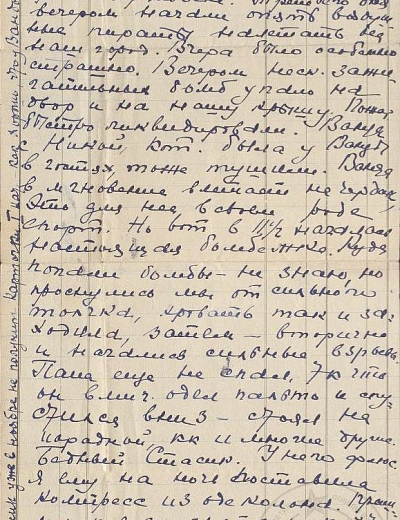 вечером начали опять воздуш-
ные пираты налетать на
наш город. Вчера было особенно
страшно. Вечером неск. зажи-
гательных бомб упало на
двор и на нашу крышу. Пожар
быстро ликвидировали. Ванда
с Никой, кот. была у Ванды
в гостях тоже тушили. Ванда
в мгновение влетает на чердак,
это для нее в своем роде
спорт. Но вот в 11 1/2 началась
настоящая бомбежка. Куда
попали бомбы - не знаю, но
проснулись мы от сильного
толчка, кровать так и за-
ходила, затем - вторично
и начались сильные взрывы.
Папа еще не спал, так что
он в миг. одел пальто и спу-
стился вниз - стоял на
парадной, как и многие другие.
Бедный Стасик. У него флюс.
Я ему на ночь поставила
компресс из одеколона.
уже 6 ноября не получил карточки